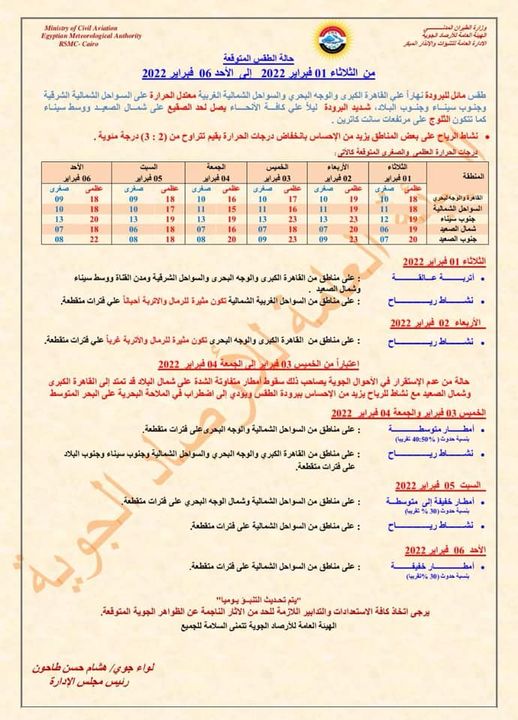 Ministry of Civil Aviation
Egyptian Meteorological Authority
RSMC- Cairo
وزارة الطيران المدنـــى
الهيئة العامة للأرصاد الجوية
الادارة العامة للتنبوات والإنذار المبكر
حالة الطقس المتوقعة
من الثلاثاء 01 فبراير 2022 إلى الأحد 06 فبراير 2022
طقس مائل للبرودة نهاراً علي القاهرة الكبرى والوجه البحري والسواحل الشمالية الغربية معتدل الحرارة على السواحل الشمالية الشرقية
وجنوب سيناء وجنوب البلاد، شديد البرودة ليلاً علي كافة الأنحاء يصل لحد الصقيع على شمال الصعيد ووسط سيناء
كما تتكون الثلوج على مرتفعات سانت كاترين .
• نشاط الرياح على بعض المناطق يزيد من الإحساس بانخفاض درجات الحرارة بقيم تتراوح من (2 : 3) درجة مئوية .
درجات الحرارة العظمي والصغرى المتوقعة كالآتي:
المنطقة الثلاثاء 01 فبراير الأربعاء 02 فبراير الخميس 03 فبراير الجمعة 04 فبراير السبت 05 فبراير الأحد 06 فبراير
عظمى صغرى عظمى صغرى عظمى صغرى عظمى صغرى عظمى صغرى عظمى صغرى
القاهرة والوجه البحري 18 10 18 10 17 10 16 10 18 09 18 09
السواحل الشمالية 18 11 19 11 16 11 15 11 17 10 18 10
جنوب سيناء 19 12 23 13 23 13 19 13 19 13 20 13
شمال الصعيد 19 06 20 07 20 07 16 08 18 06 18 07
جنوب الصعيد 20 07 23 09 23 09 20 08 18 08 22 08
الثلاثاء 01 فبراير 2022
• أتربـــة عـالقـــة : على مناطق من القاهرة الكبرى والوجه البحرى والسواحل الشرقية ومدن القناة ووسط سيناء
وشمال الصعيد .
• نشـــاط ريـــــاح : على مناطق من السواحل الغربية الشمالية تكون مثيرة للرمال والاتربة أحياناً علي فترات متقطعة.
الأربعاء 02 فبراير 2022
• نشـــاط ريـــــاح : على مناطق من القاهرة الكبرى والوجه البحرى تكون مثيرة للرمال والاتربة غرباً علي فترات متقطعة.
إعتباراً من الخميس 03 فبراير إلى الجمعة 04 فبراير 2022
حالة من عدم الإستقرار في الأحوال الجوية يصاحب ذلك سقوط أمطار متفاوتة الشدة علي شمال البلاد قد تمتد إلى القاهرة الكبرى
وشمال الصعيد مع نشاط للرياح يزيد من الإحساس ببرودة الطقس ويؤدي إلى اضطراب في الملاحة البحرية على البحر المتوسط
الخميس 03 فبراير والجمعة 04 فبراير 2022
• أمطـــار متوسطـــة : على مناطق من السواحل الشمالية والوجه البحرى على فترات متقطعة.
بنسبة حدوث ( 40:50% تقريبا)
• نشـــاط ريـــــاح : علي مناطق من القاهرة الكبري والوجه البحري والسواحل الشمالية وجنوب سيناء وجنوب البلاد
علي فترات متقطعة.
السبت 05 فبراير 2022
• أمطار خفيفة إلى متوسطـة : على مناطق من السواحل الشمالية وشمال الوجه البحري على فترات متقطعة.
بنسبة حدوث (30 % تقريبا)
• نشـــاط ريـــــاح : علي مناطق من القاهرة الكبرى والوجه البحرى والسواحل الشمالية على فترات متقطعة.
الأحد 06 فبراير 2022
• أمطـــار خفيفـــة : على مناطق من السواحل الشمالية على فترات متقطعة.
بنسبة حدوث (30 %تقريبا)
"يتم تحديث التنبؤ يوميا"
يرجى اتخاذ كافة الاستعدادات والتدابير اللازمة للحد من الآثار الناجمة عن الظواهر الجوية المتوقعة.
الهيئة العامة للأرصاد الجوية تتمنى السلامة للجميع
لواء جوي/ هشام حسن طاحون
رئيس مجلس الإدارة
الهيئة العامة للأرصاد الجوية